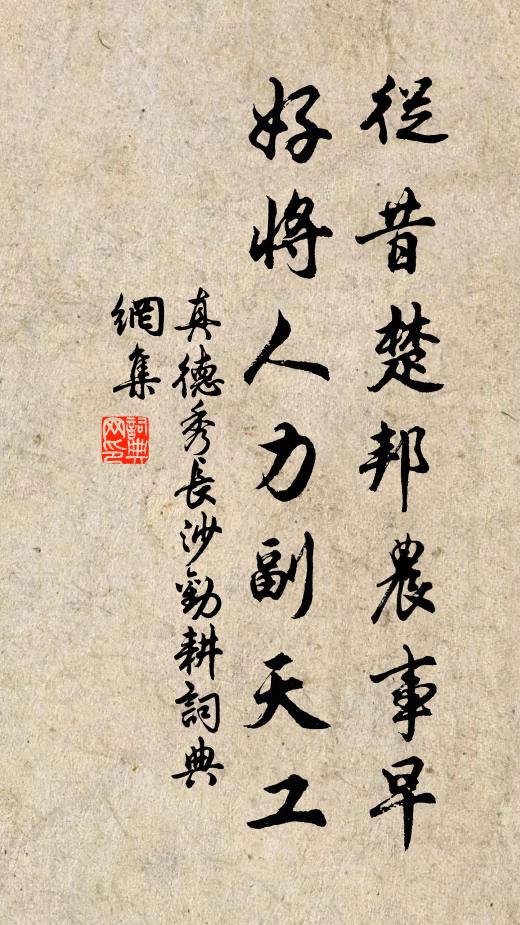 從昔楚邦農事早
好將人力副天工
真德秀長沙勸耕詞典
網集
詞典网印